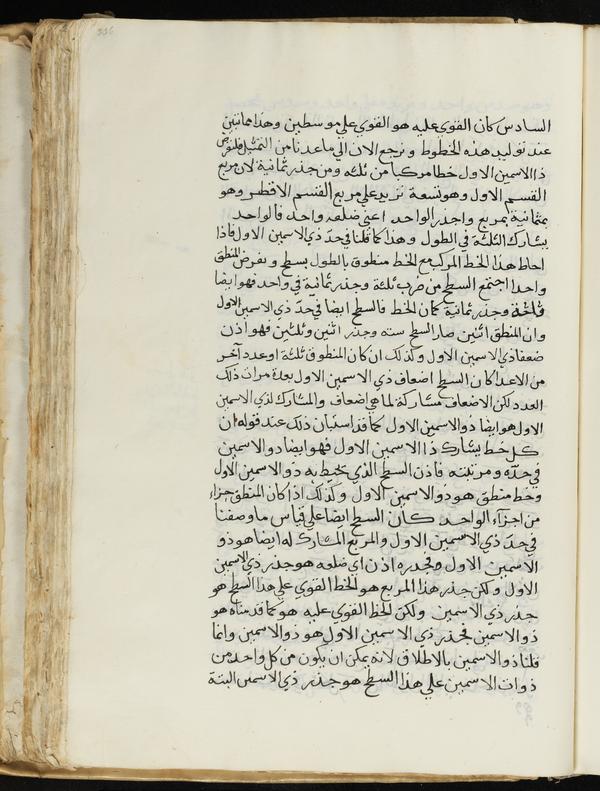 السادس كان القوي عليه هو القوي علي موسطين وهذا مما تبين
عند توليد هذه الخطوط ونرجع الان الي ما عدنا من التمثيل فلنفرض
ذا الاسمين الاول خطا مركبا من ثلثة ومن جذر ثمانية لان مربع
القسم الاول وهو تسعة تزيد علي مربع القسم الاقصر وهو
بثمانية بمربع واجذر الواحد اعني ضلعه واحد فالواحد
يشارك الثلثة في الطول وهذا كما قلنا في حد ذي الاسمين الاول فاذا
احاط هذا الخط المركب مع الخط منطوق بالطول بسطح ونفرض المنطق
واحدا اجتمع السطح من ضرب ثلثة وجذر ثمانية في واحد فهو ايضا
ثلثة وجذر ثمانية كما كان الخط فالسطح ايضا في حد ذي الاسمين الاول
وان المنطق اثنين صار السطح سته وجذر اثنين وثلثين فهو اذن
ضعفا ذي الاسمين الاول وكذلك ان كان المنطوق ثلثة او عدد آخر
من الاعداد كان السطح اضعاف ذي الاسمين الاول بعدة مرات ذلك
العدد لكن الاضعاف مشاركة لما هي اضعاف والمشارك لذي الاسمين
الاول هو ايضا ذو الاسمين الاول كما قد استبان ذلك عند قوله ان
كل خط يشارك ذا الاسمين الاول فهو ايضا ذو الاسمين
في حده ومرتبته فاذن السطح الذي يحيط به ذو الاسمين الاول
وخط منطق هو ذو الاسمين الاول وكذلك اذا كان المنطق جزءا
من اجزآء الواحد كان السطح ايضا علي قياس ما وصفنا
في حد ذي الاسمين الاول والمربع المشارك له ايضا هو ذو
الاسمين الاول وتجذره اذن اي ضلعه هو جذر ذي الاسمين
الاول ولكن جذر هذا المربع هو الخط القوي علي هذا السطح هو
جذر ذي الاسمين ولكن الخط القوي عليه هو كما قدمناه هو
ذو الاسمين فجذر ذي الاسمين الاول هو ذو الاسمين وانما
قلنا ذو الاسمين بالاطلاق لانه يمكن ان يكون من كل واحد من
ذوات الاسمين علي هذا السطح هو جذر ذي الاسمين البتة